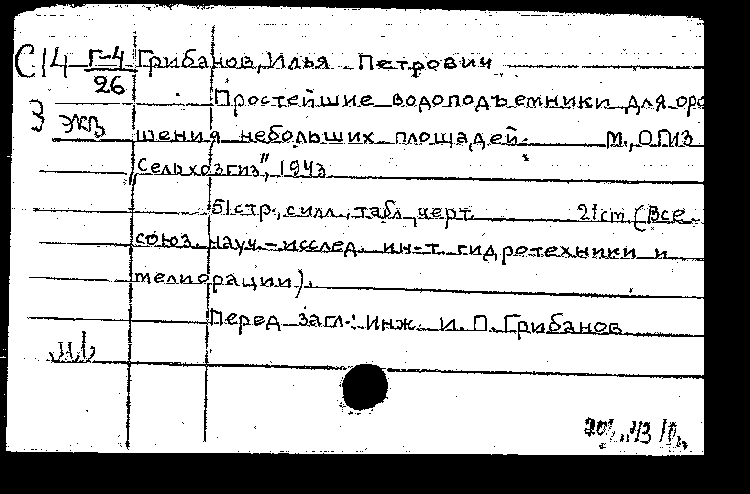 С14 Г-4 Грибанов, Илья Петрович
26
Простейшие водоподъемники для оро
3 экз шения небольших площадей. М., ОГИЗ
"Сельхозгиз", 1943
51стр., с илл., табл, черт. 21cm. (Все-
союз. науч.-исслед. ин-т. гидротехники и
мелиорации).
Перед загл.: инж. И. П. Грибанов